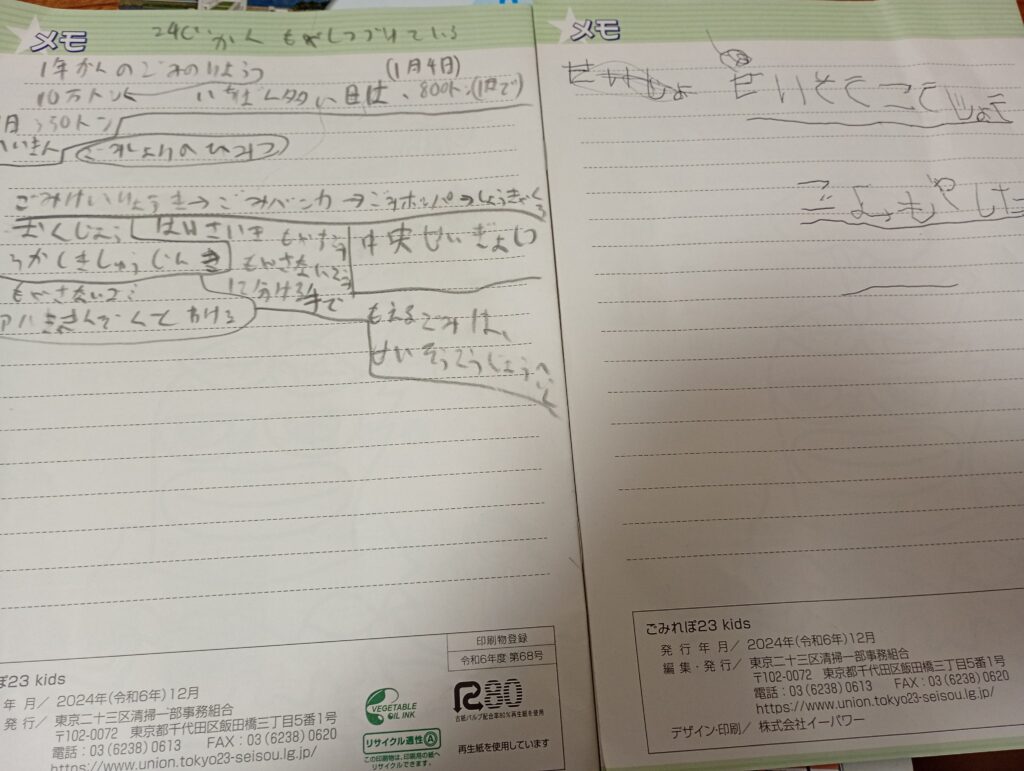 メモ
24じかん もやしつづけている
1年かんのごみのりよう (1月4日)
10万トン いちばんタタい日は、800トン(1日で)
350トン
ごみけいりょうき→ごみバンカ→ごみホッパ→しょうきゃくろ
おくじょう
はいさいき
ろかしきしゅうじんき
もやすごみ
もやさないごみ
に分ける
手で
中央せい
もやさないごみ
もえるごみは、
せいそうこうじょうへいく
印刷物登録
令和6年度 第68号
ぽ23 kids
年 月/ 2024年(令和6年)12月
発行/ 東京二十三区清掃一部事務組合
〒102-0072 東京都千代田区飯田橋三丁目5番1号
電話:03(6238)0613 FAX:03(6238)0620
https://www.union.tokyo23-seisou.lg.jp/
VEGETABLE OIL INK
リサイクル適性Ⓐ
この印刷物は、印刷用の紙へリサイクルできます。
R80
古紙パルプ配合率80%再生紙を使用
再生紙を使用しています
メモ
せいそうこうじょう
ごみもやした
ごみれぽ23 kids
発 行 年 月/ 2024年(令和6年)12月
編集・発行/ 東京二十三区清掃一部事務組合
〒102-0072 東京都千代田区飯田橋三丁目5番1号
電話:03(6238)0613 FAX:03(6238)0620
https://www.union.tokyo23-seisou.lg.jp/
デザイン・印刷/ 株式会社イーパワー